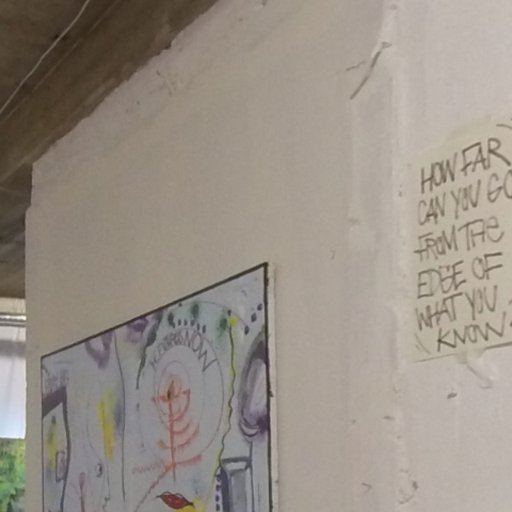 HOW FAR
CAN YOU GO
FROM THE
EDGE OF
WHAT YOU
KNOW
NOW